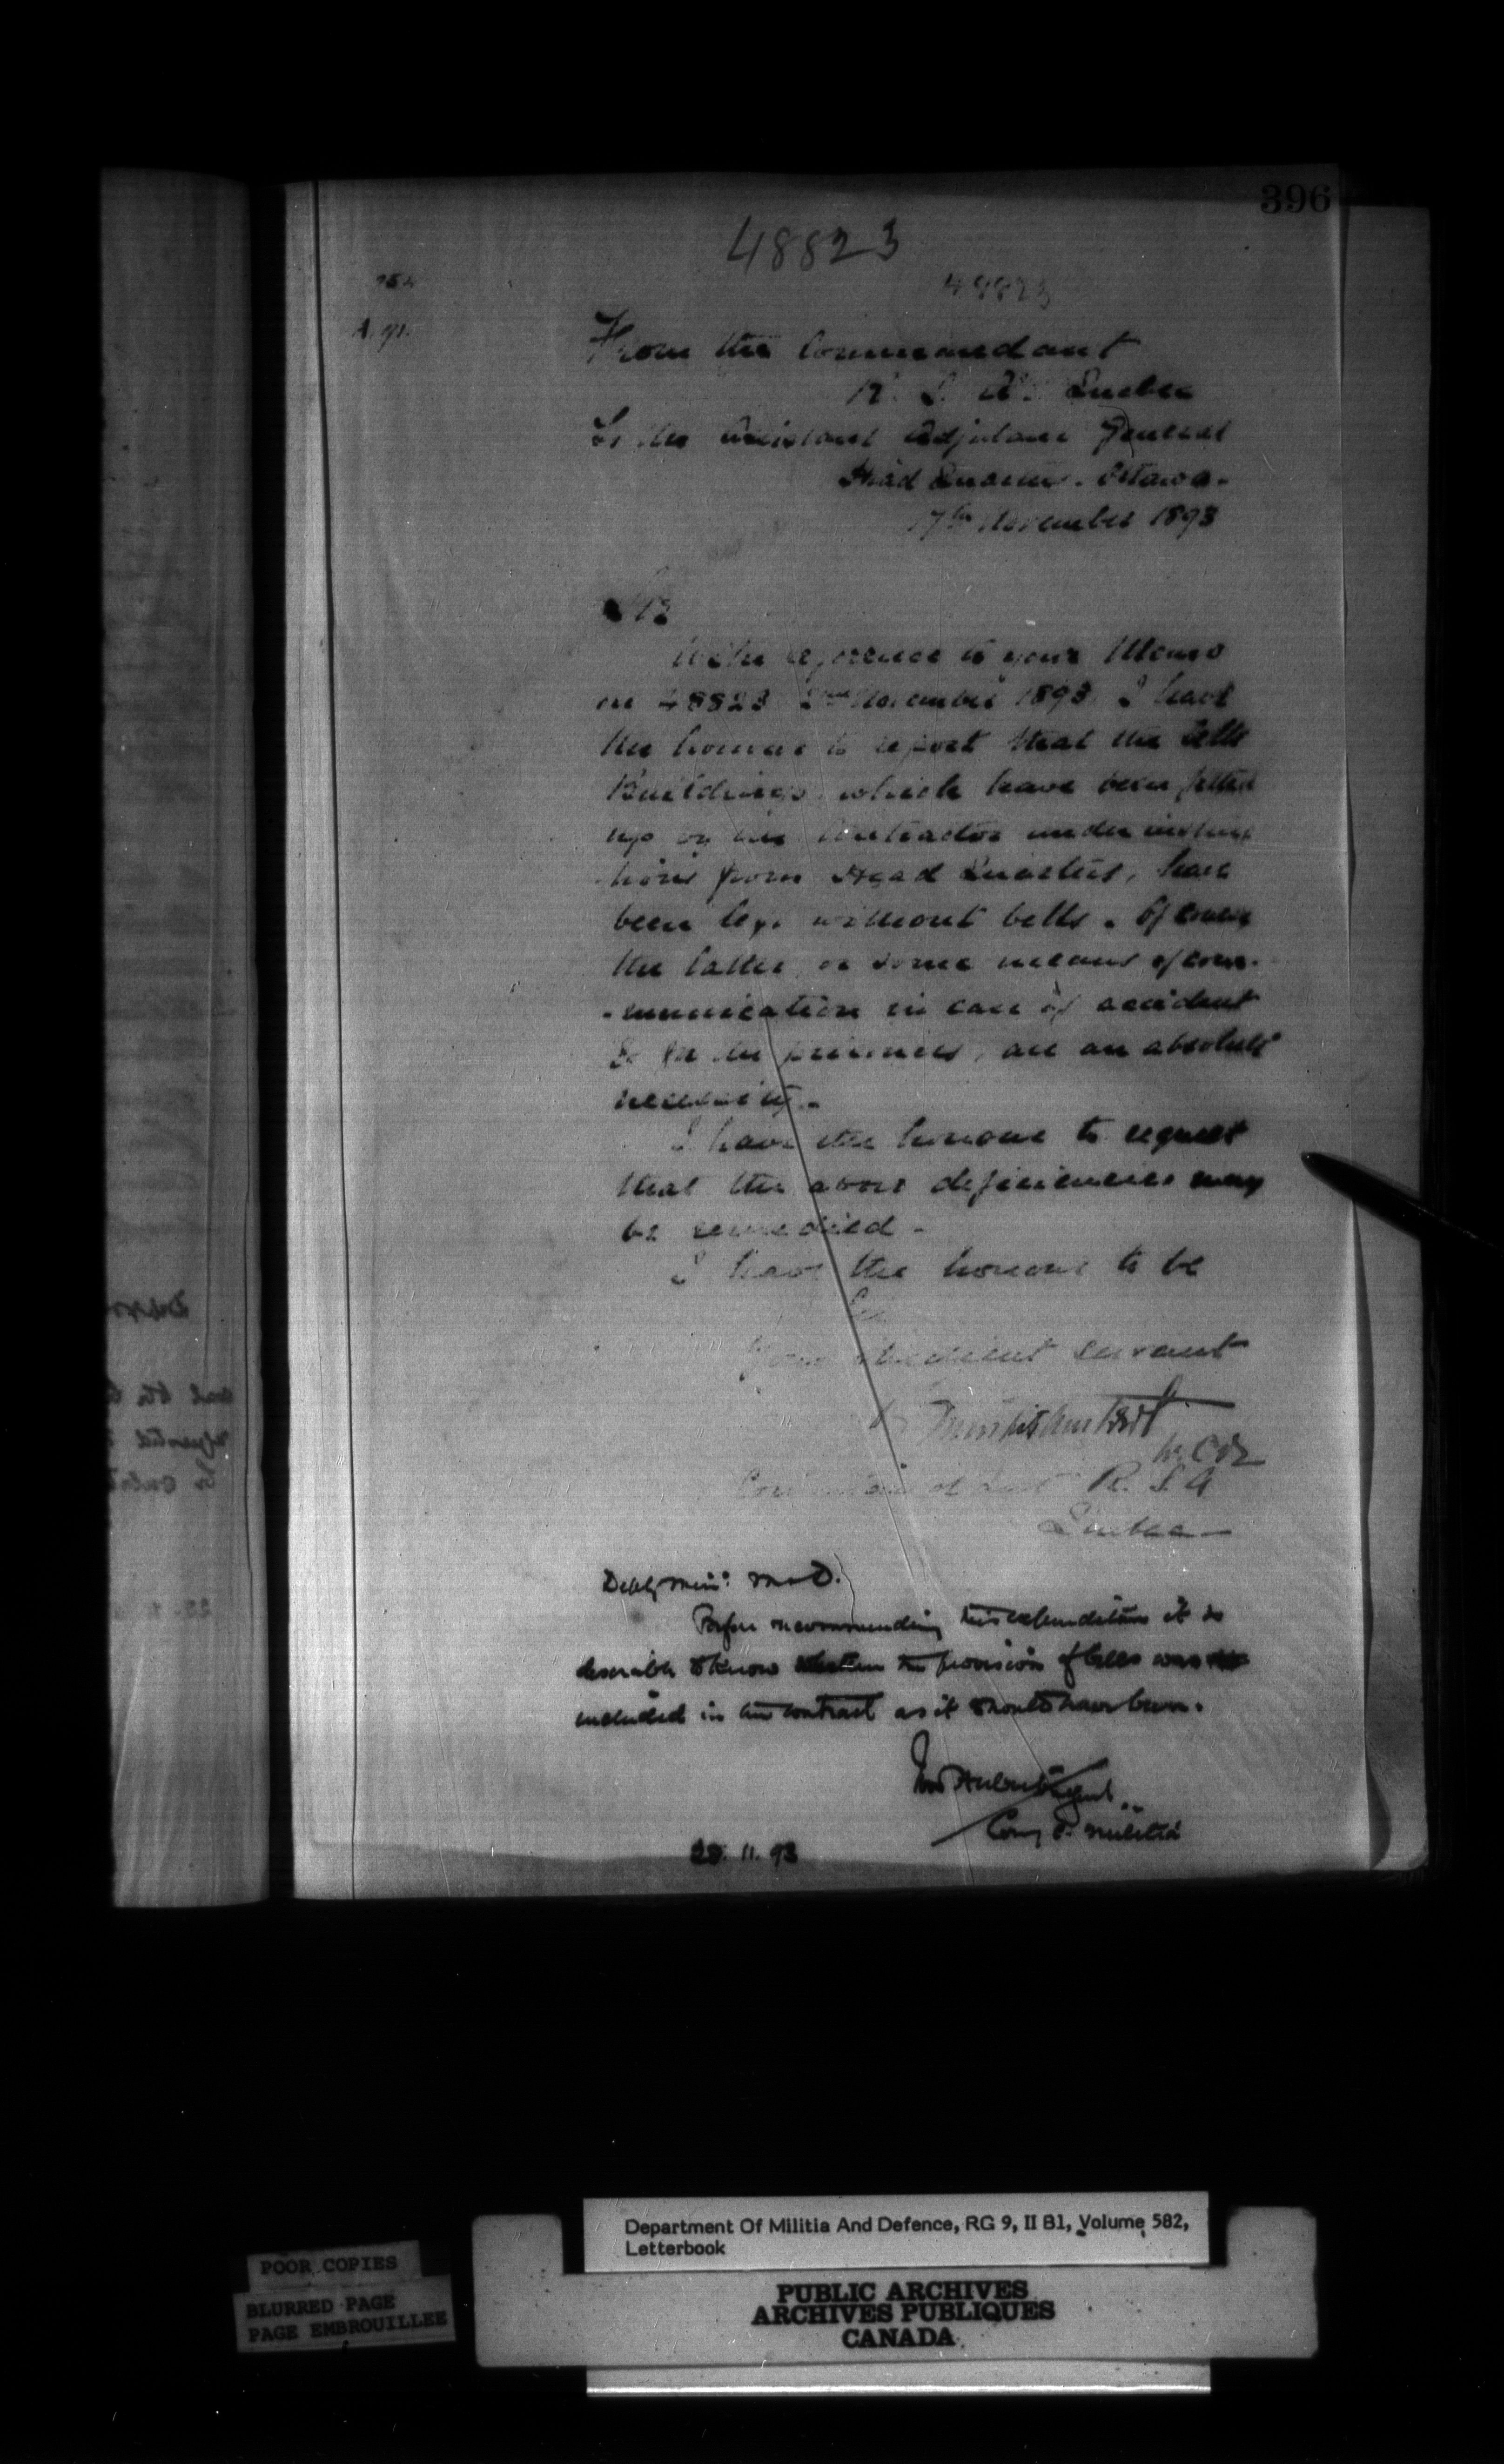 396
48823
48823
From the Commandant
R. S. A. Quebec
To the Assistant Adjutant General
Head Quarters. Ottawa.
17th November 1893
Sir
With reference to your Memo
on 48823 2nd November 1893. I have
the honour to report that the Cells
Buildings which have been fitted
up by the Contractor under instruc
tions from Head Quarters, have
been left without bells. Of course
the latter or some means of com-
-munication in case of accident
to the prisoners, are an absolute
necessity.-
I have the honour to request
that the above deficiencies may
be remedied -
I have the honour to be
Sir
Your obedient servant
Commandant R. S. A
Quebec -
Deputy Minr: M & D.
Before recommending this expenditure it is
desirable to know whether the provision of bells was
included in the contract as it should have been.
Comg Militia
28. 11. 93
Department Of Militia And Defence, RG 9, II B1, Volume 582,
Letterbook
POOR COPIES
BLURRED PAGE
PAGE EMBROUILLEE
PUBLIC ARCHIVES
ARCHIVES PUBLIQUES
CANADA